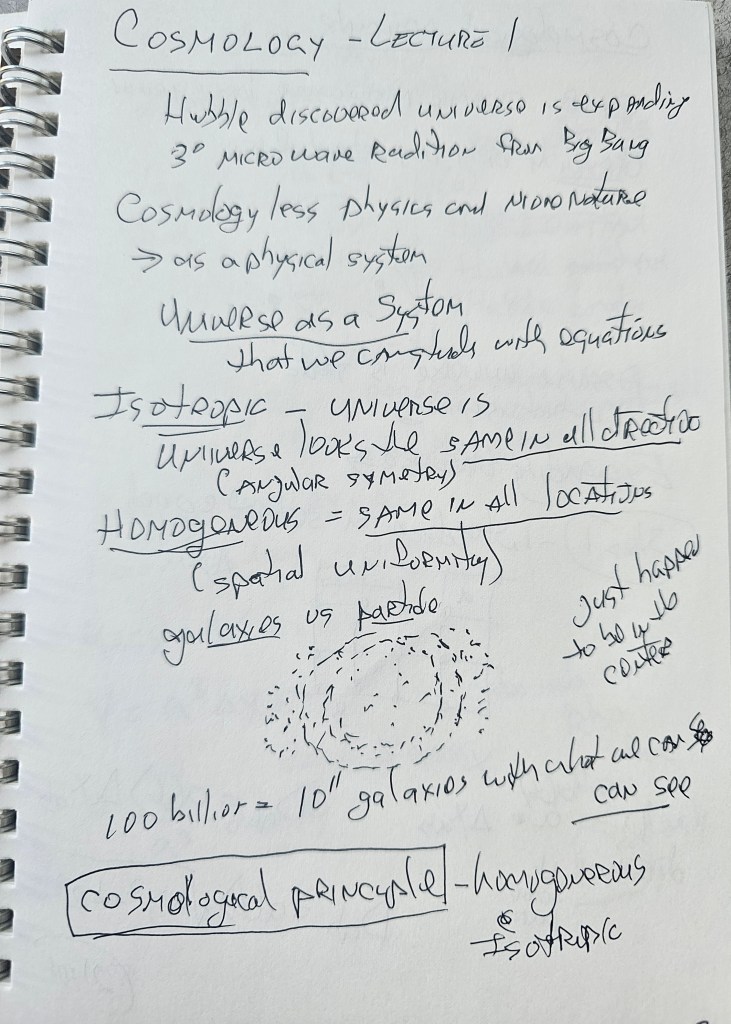 COSMOLOGY - LECTURE 1
Hubble discovered universe is expanding
3° MICROWAVE Radition from Big Bang
Cosmology less physics and more nature
→ as a physical system
Universe as a System
that we can study with equations
ISOTROPIC - UNIVERSE IS
UNIVERSE looks the SAME IN all direction
(ANGULAR SYMETRY)
HOMOGENEOUS = SAME IN All locATIONS
(spatial UNIFORMITY)
galaxies vs particle
just happen
to be in the
center
100 billion = 10¹¹ galaxies with what we can
can see
COSMOlogical PRINCIple - homogoneerous
&
Isotropic